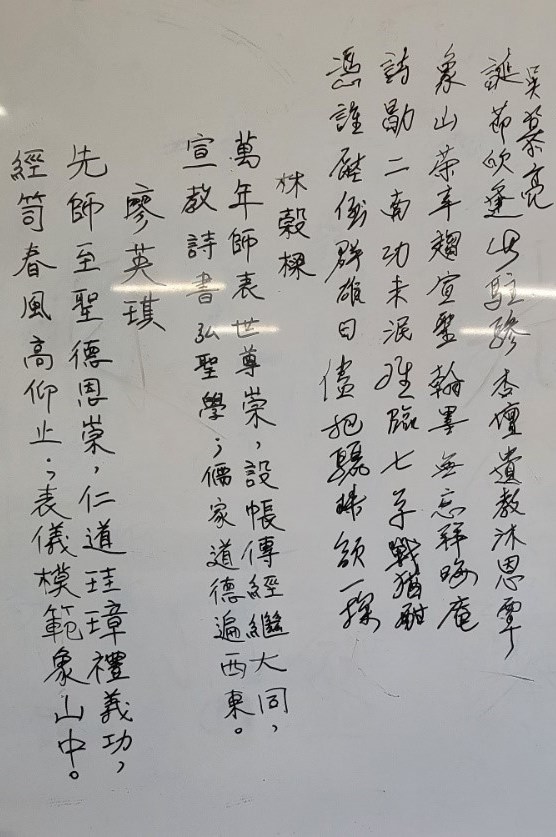 吳榮亮
誕節欣逢此駐驂杏壇遺教沐恩覃
象山萃宣聖翰墨無忘拜晦庵
詩勛二南功未泯雅臨七字戰猶酣
憑誰壓倒群雄日儘把驪珠領一探
林穀樑
萬年師表世尊崇，設帳傳經繼大同，
宣教詩書弘聖學；儒家道德遍西東。
廖英琪
先師至聖德恩崇，仁道珪璋禮義功，
經笥春風高仰止；表儀模範象山中。